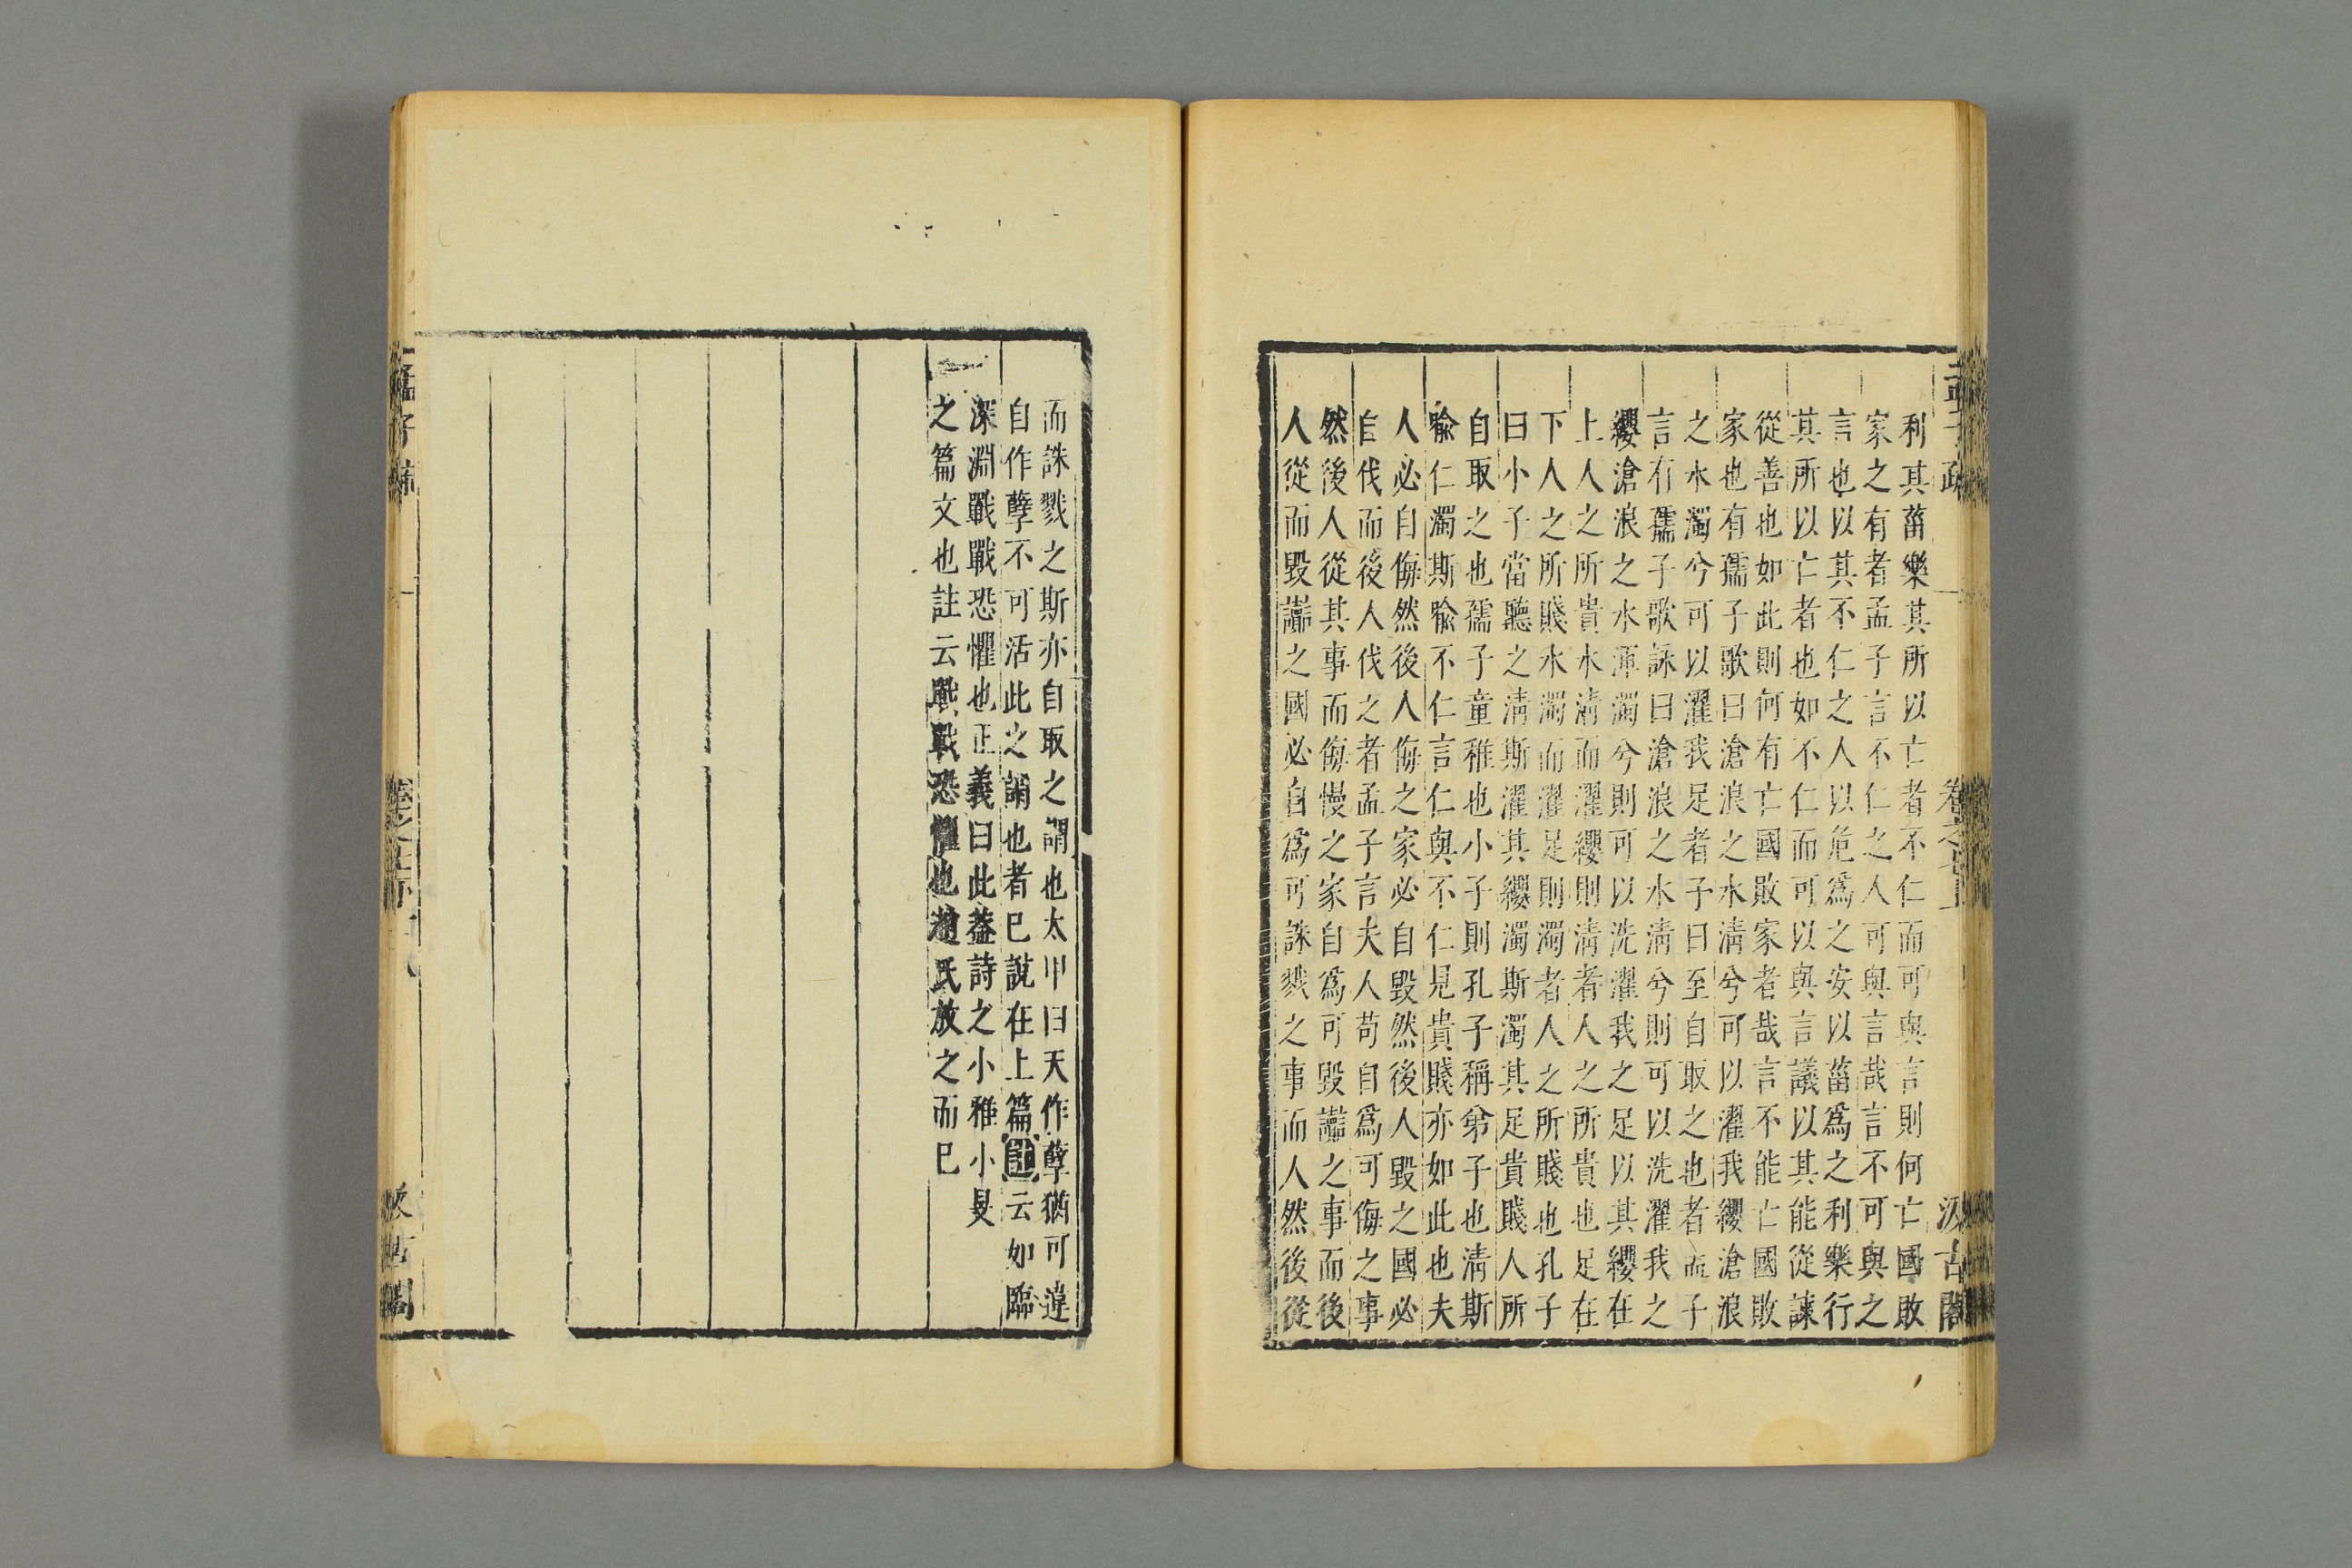 孟子疏
卷之七上
汲古閣
利其菑樂其所以亡者不仁而可與言則何亡國敗
家之有者孟子言不仁之人可與言哉言不可與之
言也以其不仁之人以危爲之安以菑爲之利樂行
其所以亡者也如不仁而可以與言議以其能從諫
從善也如此則何有亡國敗家者哉言不能亡國敗
家也有孺子歌曰滄浪之水淸兮可以濯我纓滄浪
之水濁兮可以濯我足者子曰至自取之也者孟子
言有孺子歌詠曰滄浪之水淸兮則可以洗濯我之
纓滄浪之水渾濁兮則可以洗濯我之足以其纓在
上人之所貴水淸而濯纓則淸者人之所貴也足在
下人之所賤水濁而濯足則濁者人之所賤也孔子
曰小子當聽之淸斯濯其纓濁斯濁其足貴賤人所
自取之也孺子童稚也小子則孔子稱弟子也淸斯
喻仁濁斯喻不仁言仁與不仁見貴賤亦如此也夫
人必自侮然後人侮之家必自毀然後人毀之國必
自伐而後人伐之者孟子言夫人苟自爲可侮之事
然後人從其事而侮慢之家自爲可毀讟之事而後
人從而毀讟之國必自爲可誅戮之事而人然後從
而誅戮之斯亦自取之謂也太甲曰天作孽猶可違
自作孽不可活此之謂也者已說在上篇註云如臨
深淵戰戰恐懼也正義曰此蓋詩之小雅小旻
之篇文也註云戰戰恐懼也趙氏放之而已
孟子疏
卷之七上
汲古閣